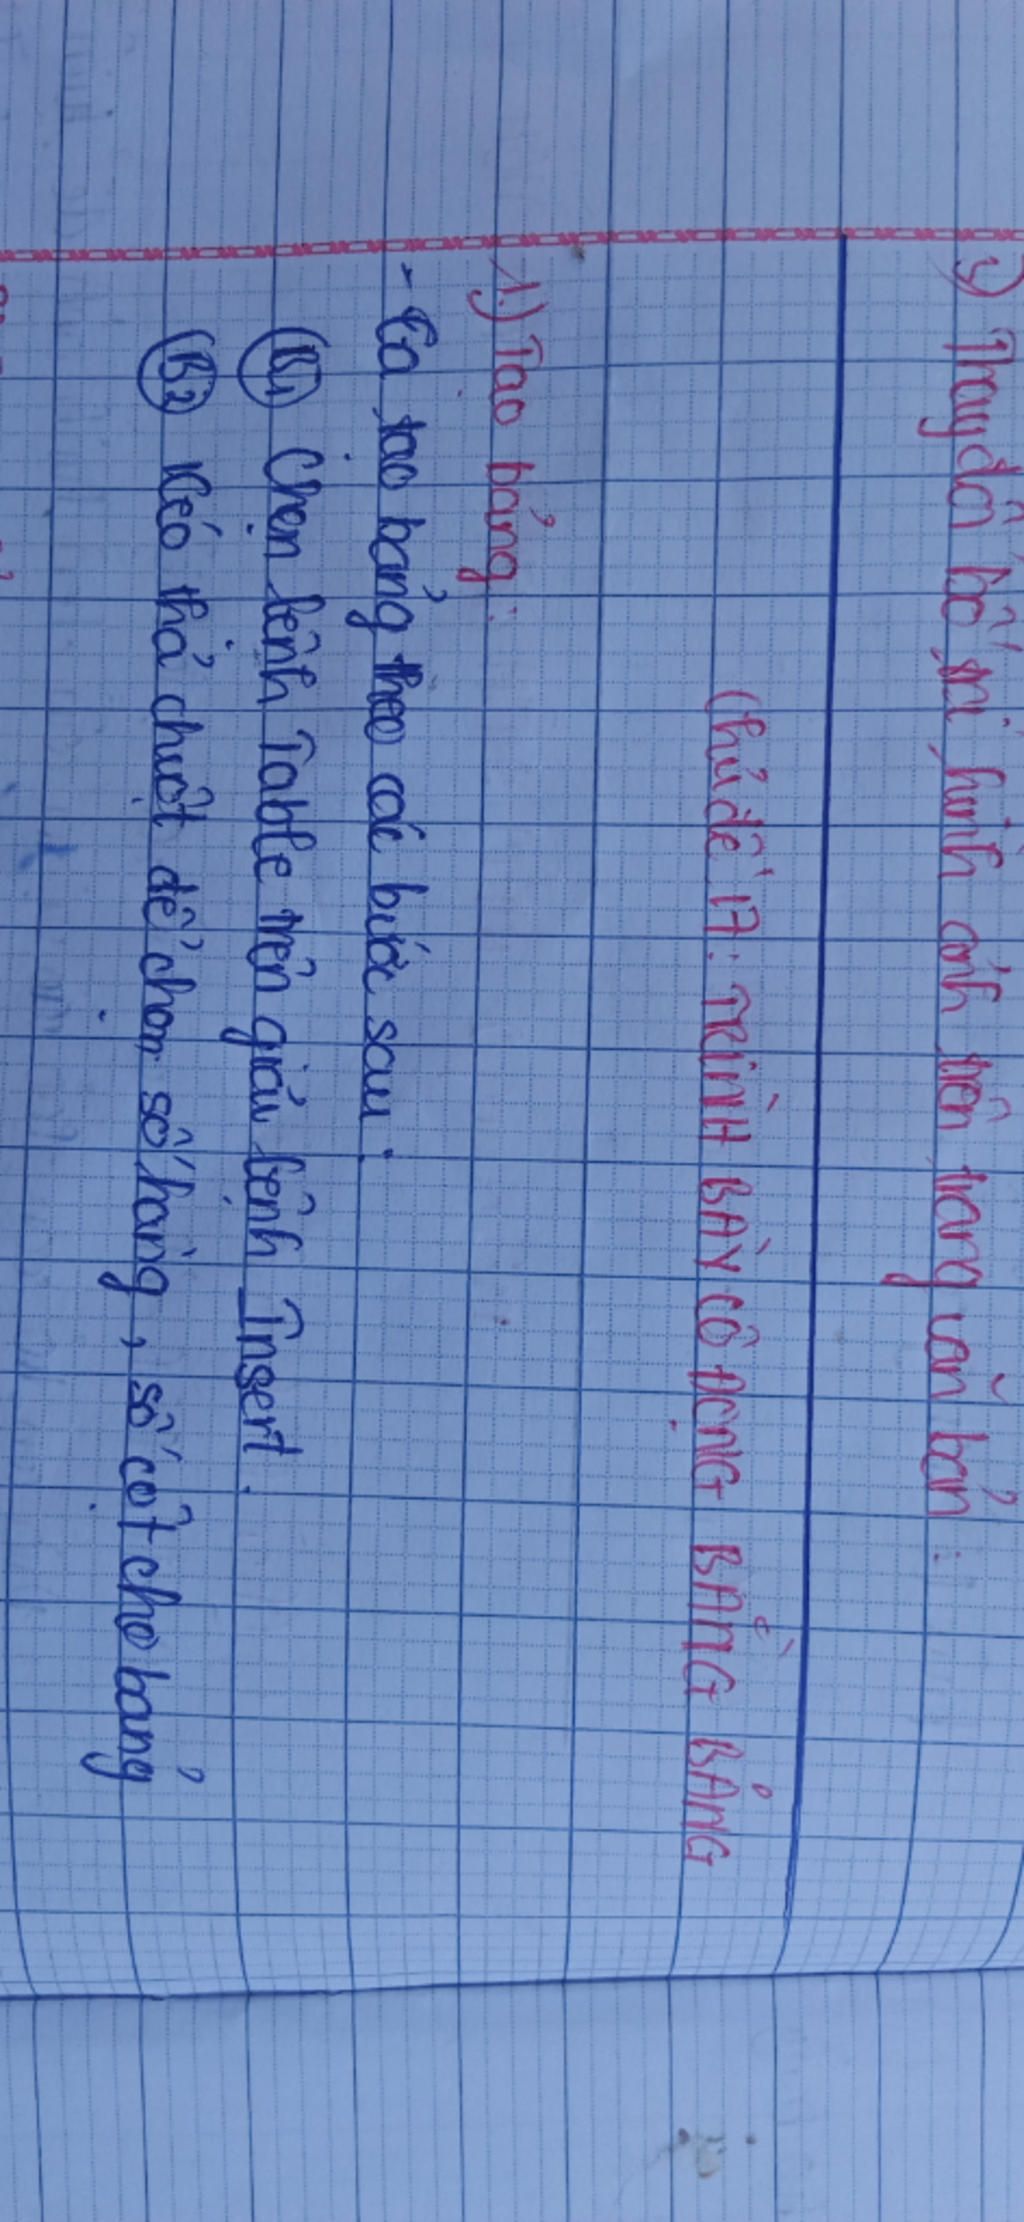 3) Thay đổi bố trí hình ảnh trên trang văn bản:
Chủ đề 17: TRÌNH BÀY CÔ ĐỌNG BẰNG BẢNG
1.) Tạo bảng:
- Ta tạo bảng theo các bước sau:
B1 Chọn lệnh Table trên giải lệnh Insert.
B2 Kéo thả chuột để chọn số hàng, số cột cho bảng